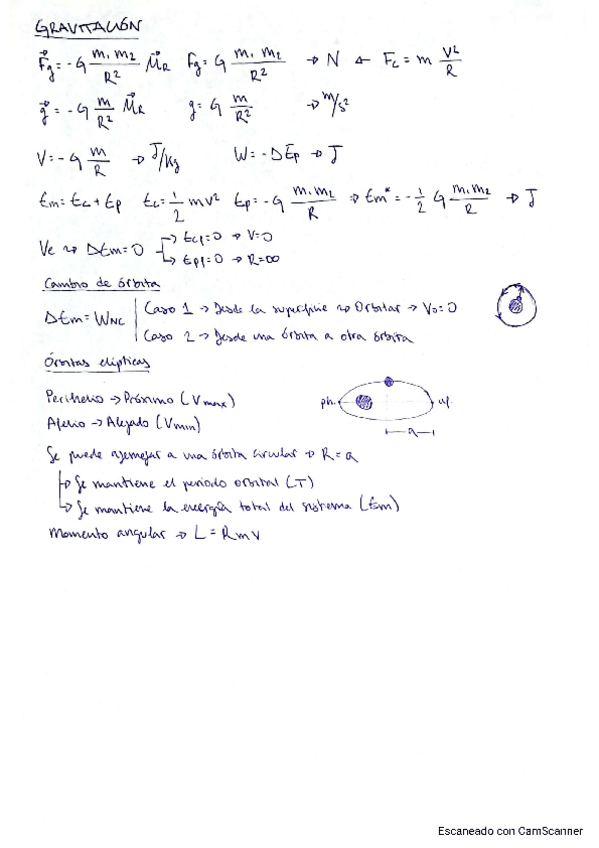 GRAVITACIÓN
F⃗g = -G m1 m2 / R² u⃗R Fg = G m1 m2 / R² → N ← Fc = m v²/R
g⃗ = -G m/R² u⃗R g = G m/R² → m/s²
V = -G m/R → J/Kg W = -ΔEp → J
Em = Ec + Ep Ec = 1/2 mv² Ep = -G m1 m2 / R → Em* = -1/2 G m1 m2 / R → J
Ve → ΔEm = 0 → Ecf = 0 → V = 0
→ Epf = 0 → R = ∞
Cambio de órbita
ΔEm = WNC | Caso 1 → Desde la superficie → Orbitar → V0 = 0
Caso 2 → Desde una órbita a otra órbita
Órbitas elípticas
Perihelio → Próximo (Vmax)
Afelio → Alejado (Vmin)
ph. af.
a
Se puede asemejar a una órbita circular → R = a
→ Se mantiene el periodo orbital (T)
→ Se mantiene la energía total del sistema (Em)
Momento angular → L = R m v
Escaneado con CamScanner